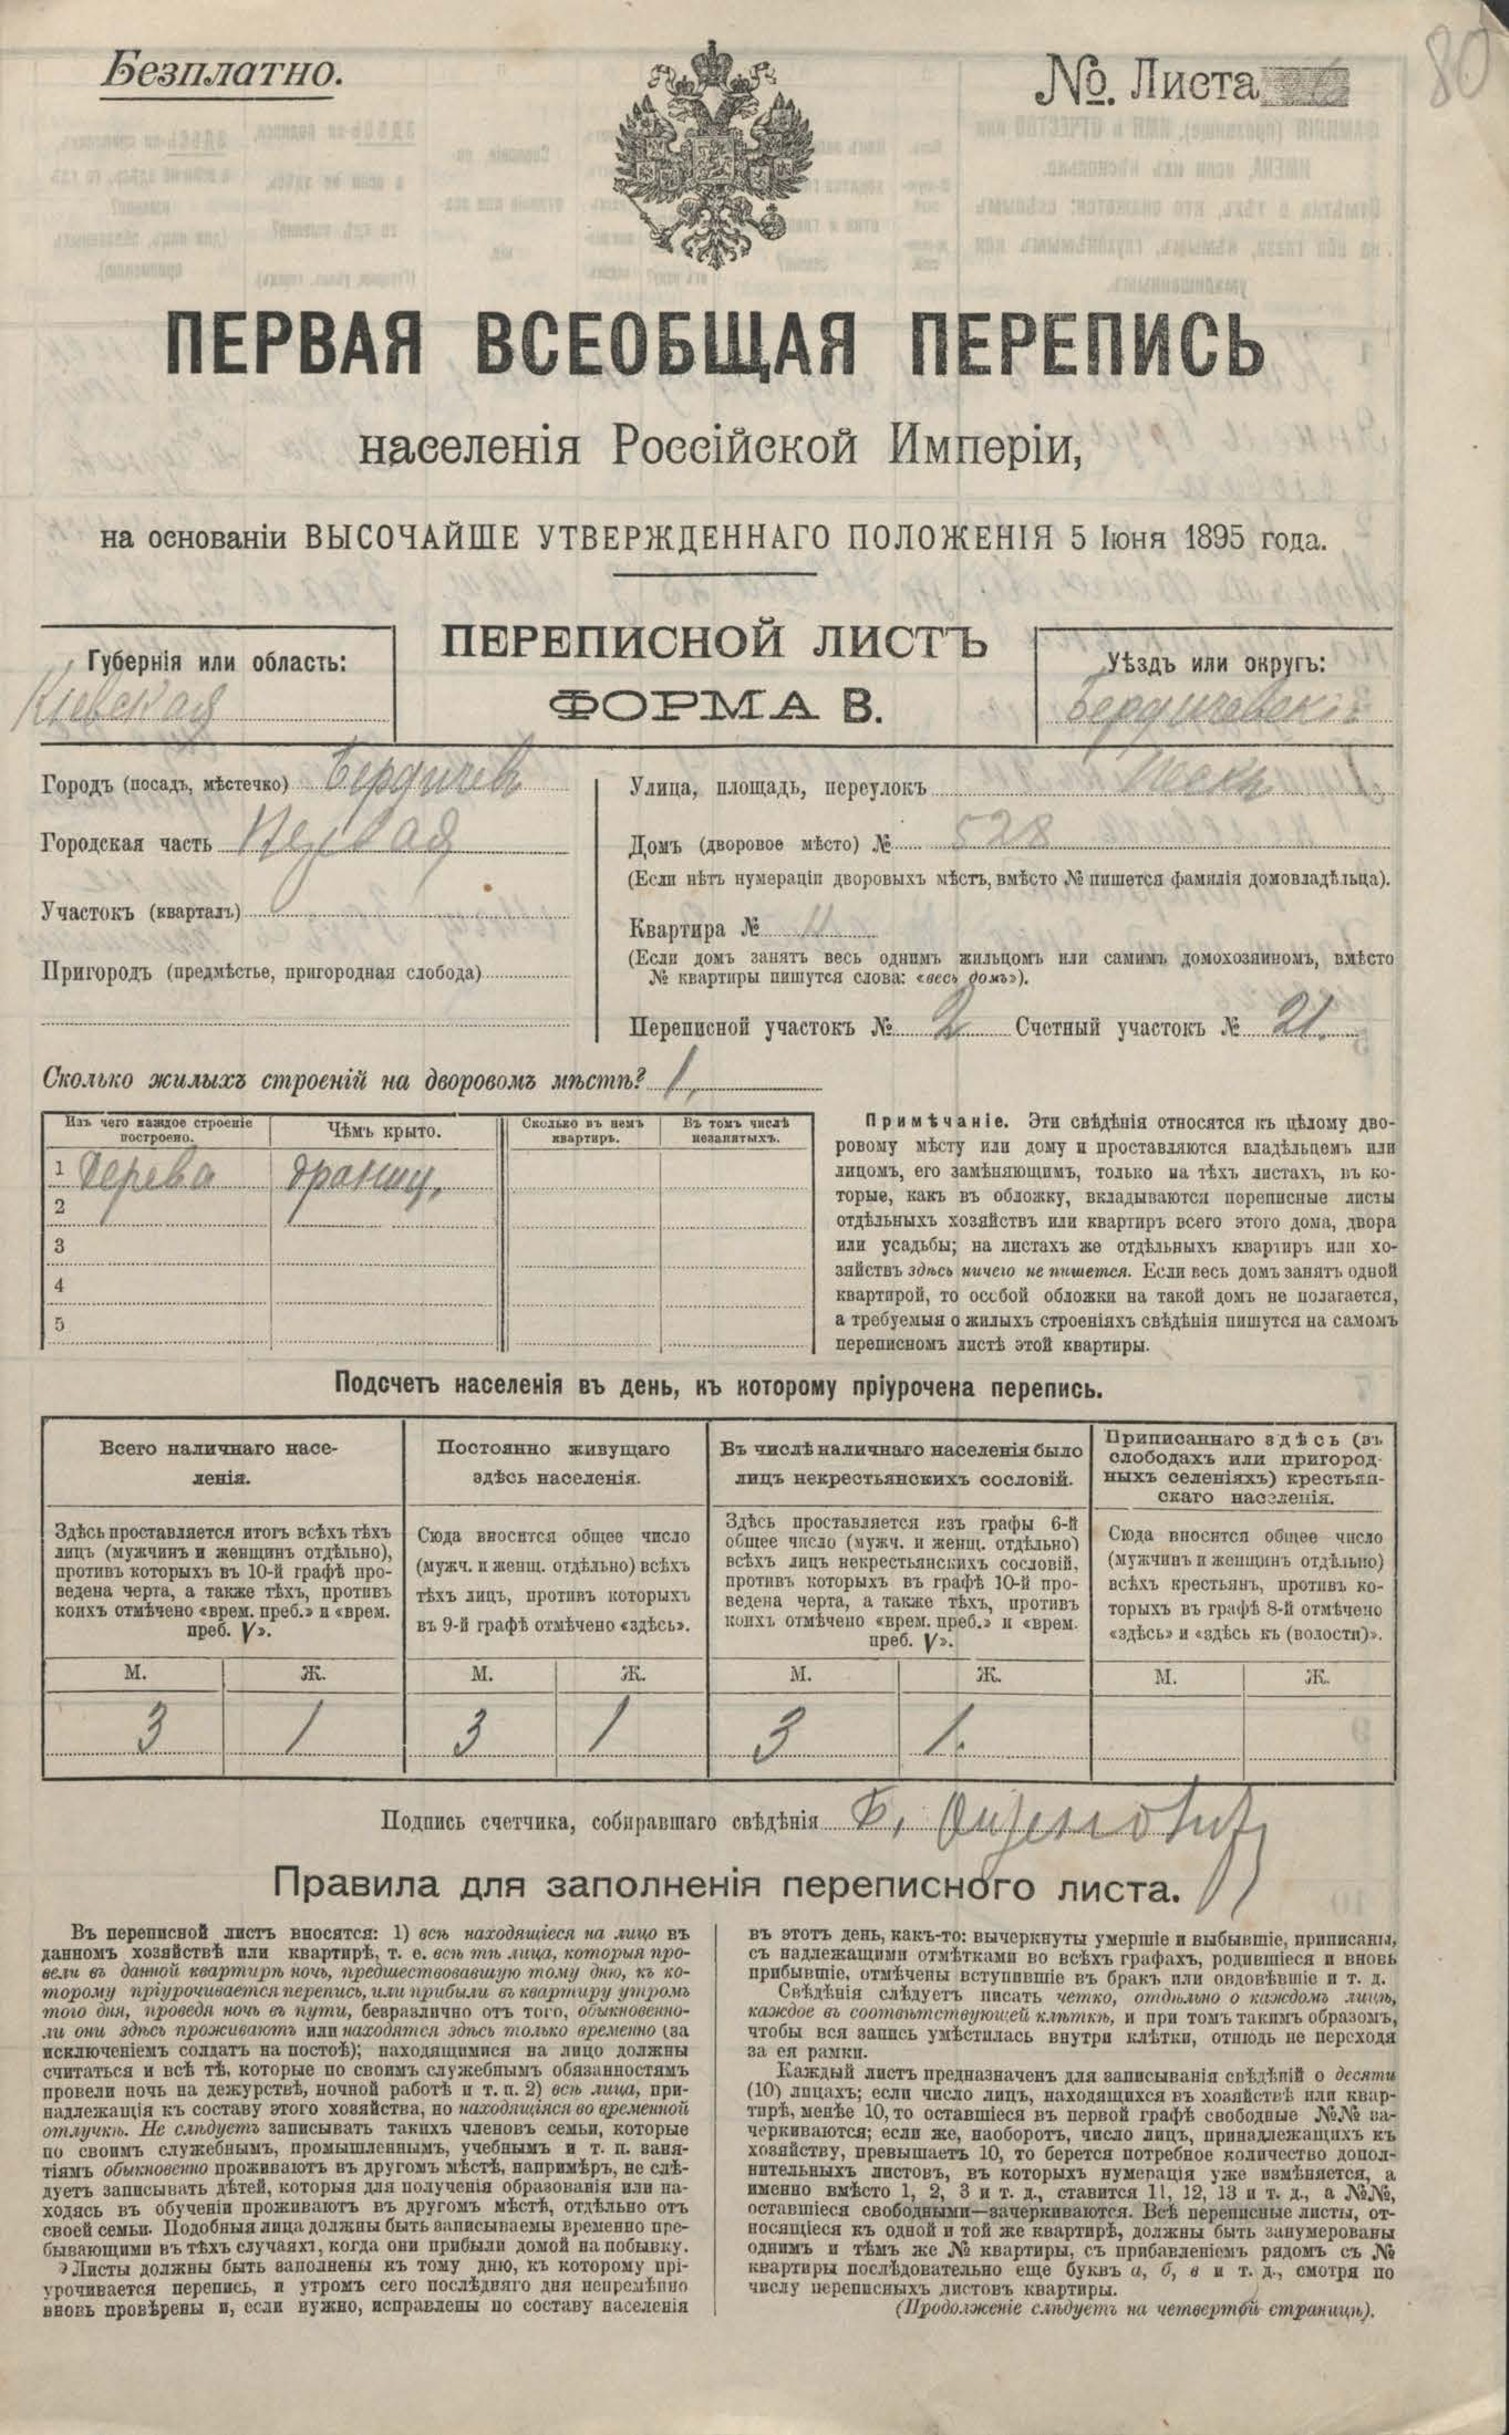 Безплатно.
№. Листа
80
ПЕРВАЯ ВСЕОБЩАЯ ПЕРЕПИСЬ
населенія Россійской Имперіи,
на основаніи ВЫСОЧАЙШЕ УТВЕРЖДЕННАГО ПОЛОЖЕНІЯ 5 Іюня 1895 года.
ПЕРЕПИСНОЙ ЛИСТЪ
ФОРМА В.
Губернія или область:
Кіевская
Уѣздъ или округъ:
Бердичевскій
Городъ (посадъ, мѣстечко) Бердичев
Городская часть Первая
Участокъ (кварталъ)
Пригородъ (предмѣстье, пригородная слобода)
Улица, площадь, переулокъ
Домъ (дворовое мѣсто) № 528
(Если нѣтъ нумераціи дворовыхъ мѣстъ, вмѣсто № пишется фамилія домовладѣльца).
Квартира № 11
(Если домъ занятъ весь однимъ жильцомъ или самимъ домохозяиномъ, вмѣсто
№ квартиры пишутся слова: «весь домъ»).
Переписной участокъ № 2 Счетный участокъ № 21.
Сколько жилыхъ строеній на дворовомъ мѣстѣ? 1,
Изъ чего каждое строеніе
построено.
Чѣмъ крыто.
Сколько въ немъ
квартиръ.
Въ томъ числѣ
незанятыхъ.
1 Дерева драниц,
2
3
4
5
Примѣчаніе. Эти свѣдѣнія относятся къ цѣлому дво-
ровому мѣсту или дому и проставляются владѣльцемъ или
лицомъ, его замѣняющимъ, только на тѣхъ листахъ, въ ко-
торые, какъ въ обложку, вкладываются переписные листы
отдѣльныхъ хозяйствъ или квартиръ всего этого дома, двора
или усадьбы; на листахъ же отдѣльныхъ квартиръ или хо-
зяйствъ здѣсь ничего не пишется. Если весь домъ занятъ одной
квартирой, то особой обложки на такой домъ не полагается,
а требуемыя о жилыхъ строеніяхъ свѣдѣнія пишутся на самомъ
переписномъ листѣ этой квартиры.
Подсчетъ населенія въ день, къ которому пріурочена перепись.
Всего наличнаго насе-
ленія.
Постоянно живущаго
здѣсь населенія.
Въ числѣ наличнаго населенія было
лицъ некрестьянскихъ сословій.
Приписаннаго здѣсь (въ
слободахъ или пригород-
ныхъ селеніяхъ) крестьян-
скаго населенія.
Здѣсь проставляется итогъ всѣхъ тѣхъ
лицъ (мужчинъ и женщинъ отдѣльно),
противъ которыхъ въ 10-й графѣ про-
ведена черта, а также тѣхъ, противъ
коихъ отмѣчено «врем. преб.» и «врем.
преб. V».
Сюда вносится общее число
(мужч. и женщ. отдѣльно) всѣхъ
тѣхъ лицъ, противъ которыхъ
въ 9-й графѣ отмѣчено «здѣсь».
Здѣсь проставляется изъ графы 6-й
общее число (мужч. и женщ. отдѣльно)
всѣхъ лицъ некрестьянскихъ сословій,
противъ которыхъ въ графѣ 10-й про-
ведена черта, а также тѣхъ, противъ
коихъ отмѣчено «врем. преб.» и «врем.
преб. V».
Сюда вносится общее число
(мужчинъ и женщинъ отдѣльно)
всѣхъ крестьянъ, противъ ко-
торыхъ въ графѣ 8-й отмѣчено
«здѣсь» и «здѣсь къ (волости)».
М. Ж. М. Ж. М. Ж. М. Ж.
3 1 3 1 3 1.
Подпись счетчика, собиравшаго свѣдѣнія Б.
Правила для заполненія переписного листа.
Въ переписной листъ вносятся: 1) всѣ находящіеся на лицо въ
данномъ хозяйствѣ или квартирѣ, т. е. всѣ тѣ лица, которыя про-
вели въ данной квартирѣ ночь, предшествовавшую тому дню, къ ко-
торому пріурочивается перепись, или прибыли въ квартиру утромъ
того дня, проведя ночь въ пути, безразлично отъ того, обыкновенно-
ли они здѣсь проживаютъ или находятся здѣсь только временно (за
исключеніемъ солдатъ на постоѣ); находящимися на лицо должны
считаться и всѣ тѣ, которые по своимъ служебнымъ обязанностямъ
провели ночь на дежурствѣ, ночной работѣ и т. п. 2) всѣ лица, при-
надлежащія къ составу этого хозяйства, но находящіяся во временной
отлучкѣ. Не слѣдуетъ записывать такихъ членовъ семьи, которые
по своимъ служебнымъ, промышленнымъ, учебнымъ и т. п. заня-
тіямъ обыкновенно проживаютъ въ другомъ мѣстѣ, напримѣръ, не слѣ-
дуетъ записывать дѣтей, которыя для полученія образованія или на-
ходясь въ обученіи проживаютъ въ другомъ мѣстѣ, отдѣльно отъ
своей семьи. Подобныя лица должны быть записываемы временно пре-
бывающими въ тѣхъ случаяхъ, когда они прибыли домой на побывку.
Листы должны быть заполнены къ тому дню, къ которому прі-
урочивается перепись, и утромъ сего послѣдняго дня непремѣнно
вновь провѣрены и, если нужно, исправлены по составу населенія
въ этотъ день, какъ-то: вычеркнуты умершіе и выбывшіе, приписаны,
съ надлежащими отмѣтками во всѣхъ графахъ, родившіеся и вновь
прибывшіе, отмѣчены вступившіе въ бракъ или овдовѣвшіе и т. д.
Свѣдѣнія слѣдуетъ писать четко, отдѣльно о каждомъ лицѣ,
каждое въ соотвѣтствующей клѣткѣ, и при томъ такимъ образомъ,
чтобы вся запись умѣстилась внутри клѣтки, отнюдь не переходя
за ея рамки.
Каждый листъ предназначенъ для записыванія свѣдѣній о десяти
(10) лицахъ; если число лицъ, находящихся въ хозяйствѣ или квар-
тирѣ, менѣе 10, то оставшіеся въ первой графѣ свободные №№ за-
черкиваются; если же, наоборотъ, число лицъ, принадлежащихъ къ
хозяйству, превышаетъ 10, то берется потребное количество допол-
нительныхъ листовъ, въ которыхъ нумерація уже измѣняется, а
именно вмѣсто 1, 2, 3 и т. д., ставится 11, 12, 13 и т. д., а №№,
оставшіеся свободными—зачеркиваются. Всѣ переписные листы, от-
носящіеся къ одной и той же квартирѣ, должны быть занумерованы
однимъ и тѣмъ же № квартиры, съ прибавленіемъ рядомъ съ №
квартиры послѣдовательно еще буквъ а, б, в и т. д., смотря по
числу переписныхъ листовъ квартиры.
(Продолженіе слѣдуетъ на четвертой страницѣ).